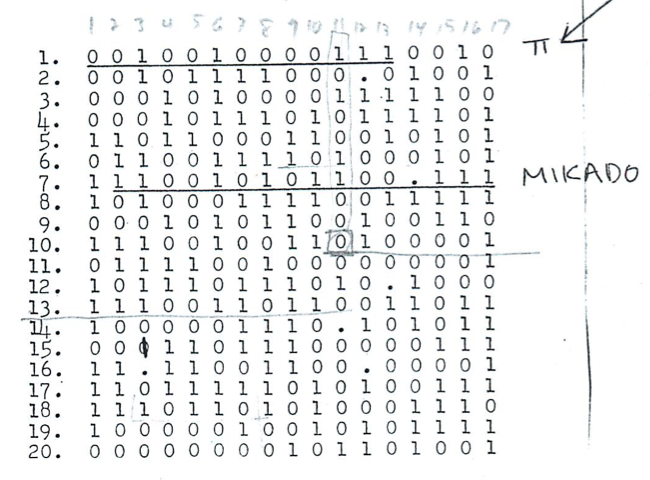 1 2 3 4 5 6 7 8 9 10 11 12 13 14 15 16 17
1. 0 0 1 0 0 1 0 0 0 0 1 1 1 0 0 1 0 π
2. 0 0 1 0 1 1 1 1 0 0 0 . 0 1 0 0 1
3. 0 0 0 1 0 1 0 0 0 0 1 1 1 1 1 0 0
4. 0 0 0 1 0 1 1 1 0 1 0 1 1 1 1 0 1
5. 1 1 0 1 1 0 0 0 1 1 0 0 1 0 1 0 1
6. 0 1 1 0 0 1 1 1 1 0 1 0 0 0 1 0 1
7. 1 1 1 0 0 1 0 1 0 1 1 0 0 . 1 1 1 MIKADO
8. 1 0 1 0 0 0 1 1 1 1 0 0 1 1 1 1 1
9. 0 0 0 1 0 1 0 1 1 0 0 1 0 0 1 1 0
10. 1 1 1 0 0 1 0 0 1 1 0 1 0 0 0 0 1
11. 0 1 1 1 1 0 0 1 0 0 0 0 0 0 0 0 1
12. 1 0 1 1 1 0 1 1 1 0 1 0 . 1 0 0 0
13. 1 1 1 0 0 1 1 0 1 1 0 0 1 1 0 1 1
14. 1 0 0 0 0 0 1 1 1 0 . 1 0 1 0 1 1
15. 0 0 0 1 1 0 1 1 1 0 0 0 0 0 1 1 1
16. 1 1 . 1 1 0 0 1 1 0 0 . 0 0 0 0 1
17. 1 1 0 1 1 1 1 1 0 1 0 1 0 0 1 1 1
18. 1 1 1 0 1 1 0 1 0 1 0 0 0 1 1 1 0
19. 1 0 0 0 0 0 1 0 0 1 0 1 0 1 1 1 1
20. 0 0 0 0 0 0 0 0 1 0 1 1 0 1 0 0 1